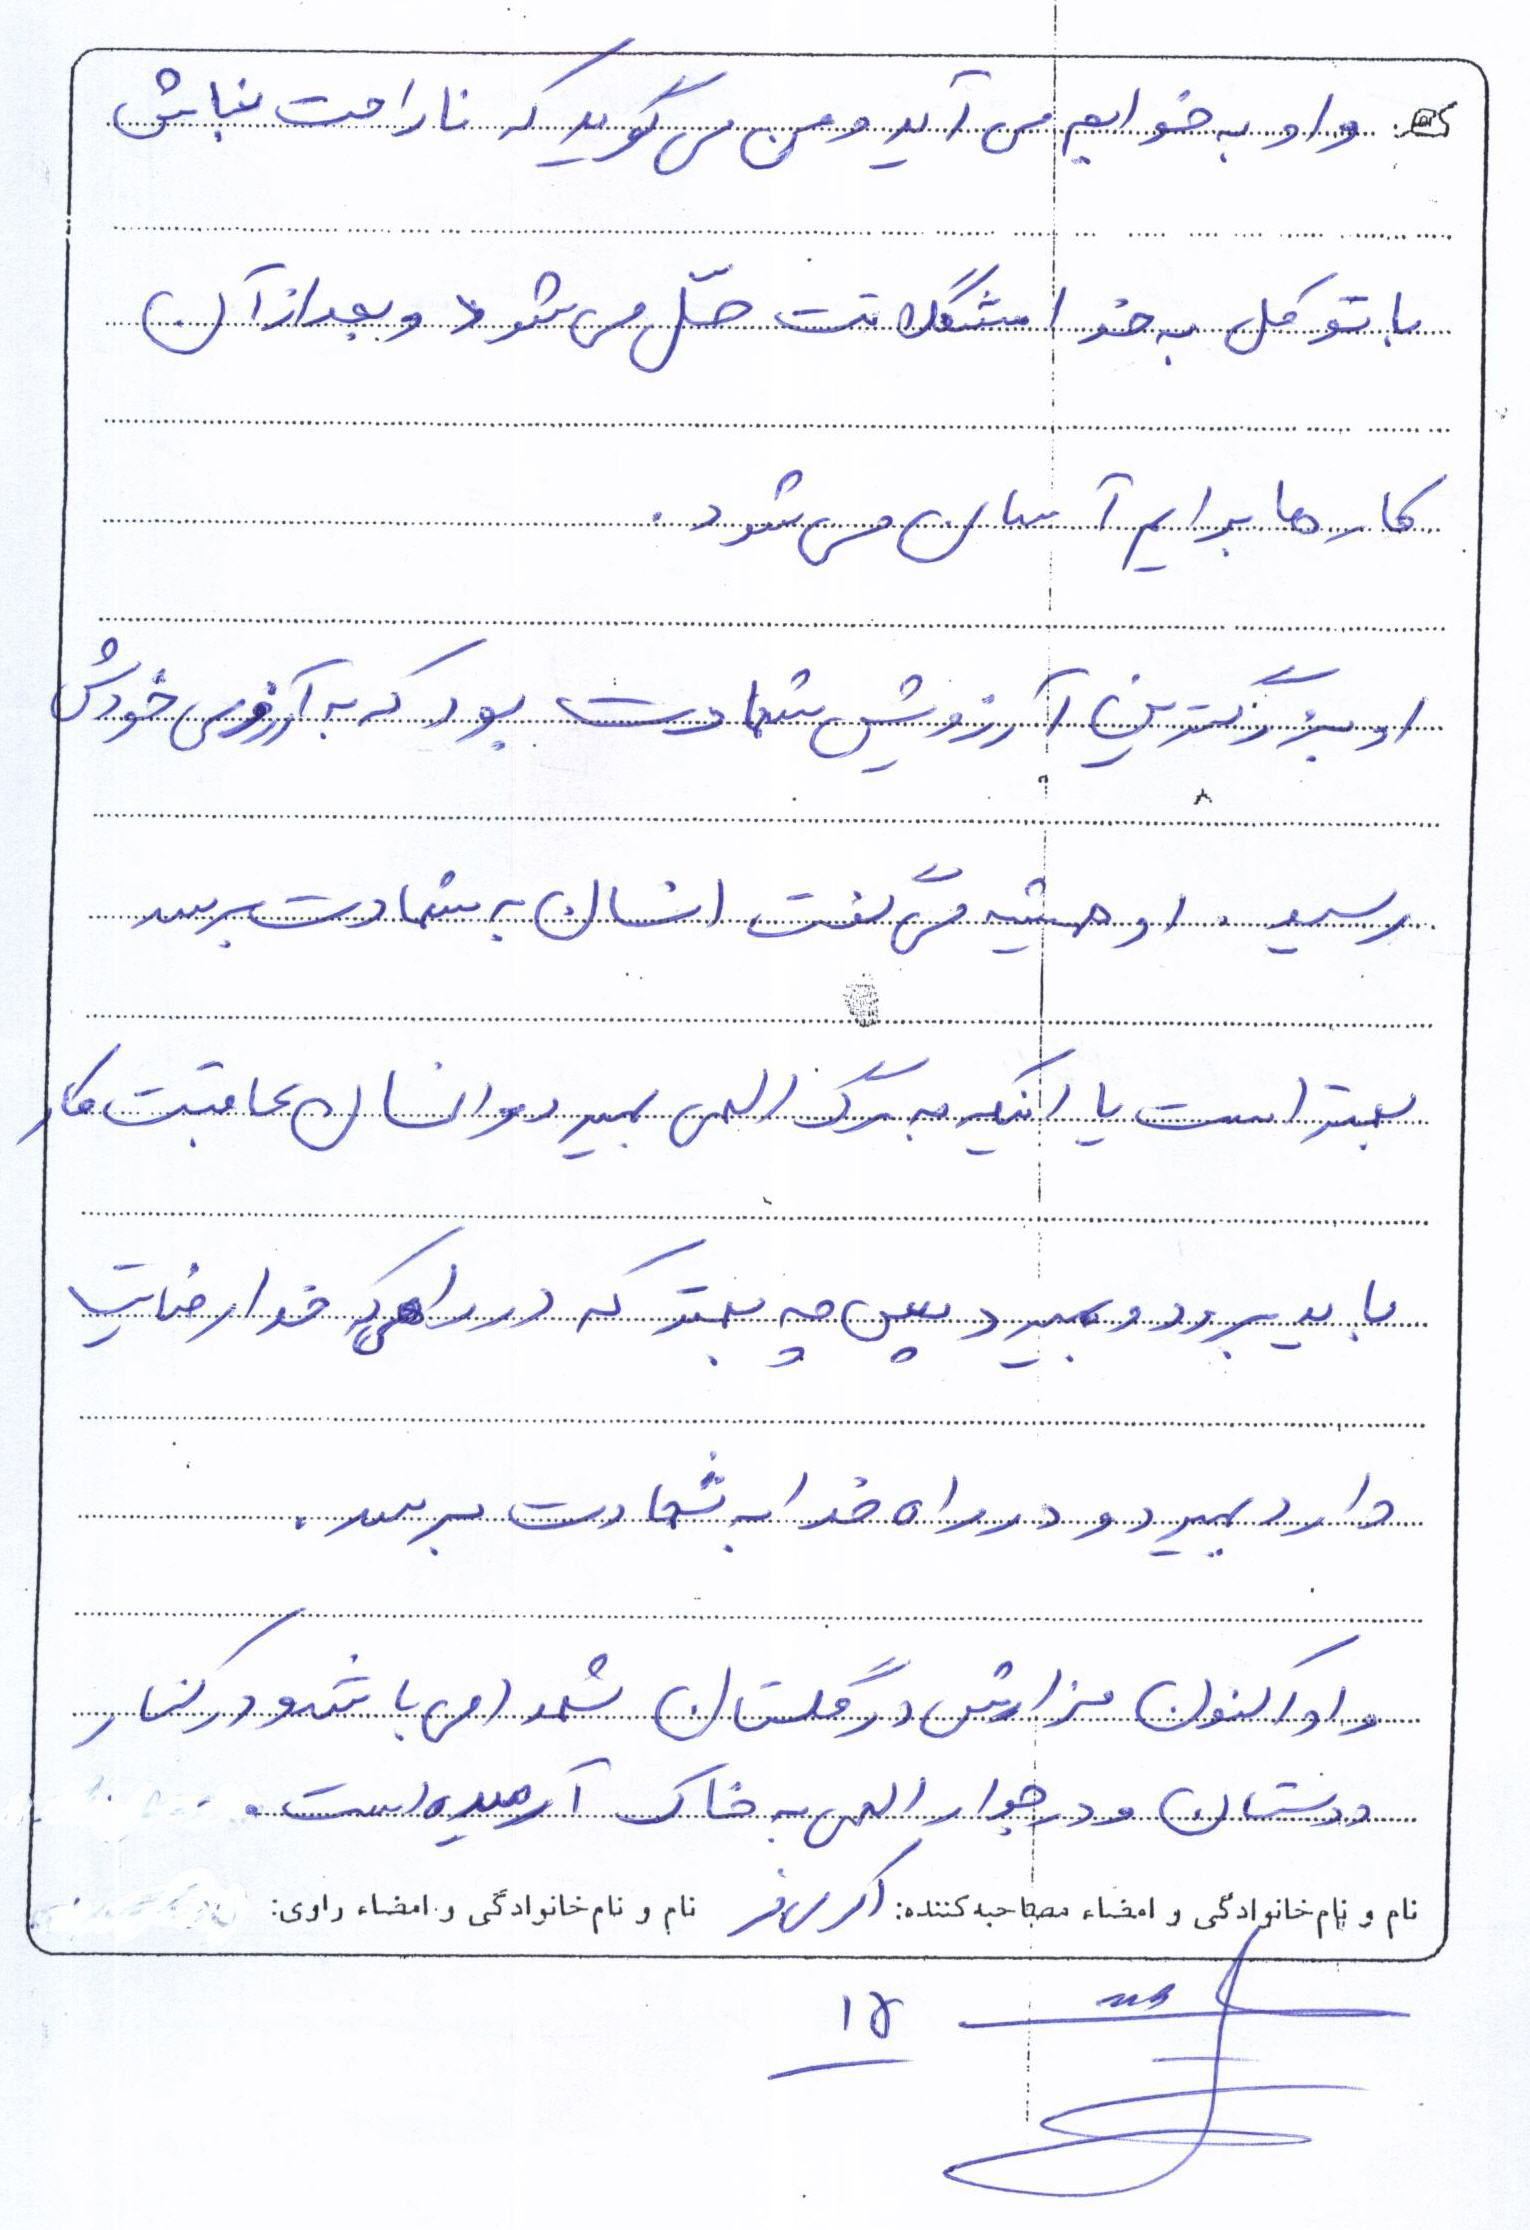 و او به خوابم می آید و من می گوید که ناراحت نباش
با توکل به خدا مشگلاتت حلّ می شود و بعد از آن
کارها برایم آسان می شود.
او بزرگترین آرزویش شهادت بود که به آرزوی خودش
رسید. او همیشه می گفت انسان به شهادت برسد
بهتر است یا اینکه به مرگ الهی بمیرد و انسان عاقبت کار
باید برود و بمیرد پس چه بهتر که در راهی که خدا رضایت
دارد بمیرد و در راه خدا به شهادت برسد.
و او اکنون مزارش در گلستان شهدا می باشد و در کنار
دوستان و در جوار الهی به خاک آرمیده است.
نام و نام خانوادگی و امضاء مصاحبه کننده: نام و نام خانوادگی و امضاء راوی:
۱۵